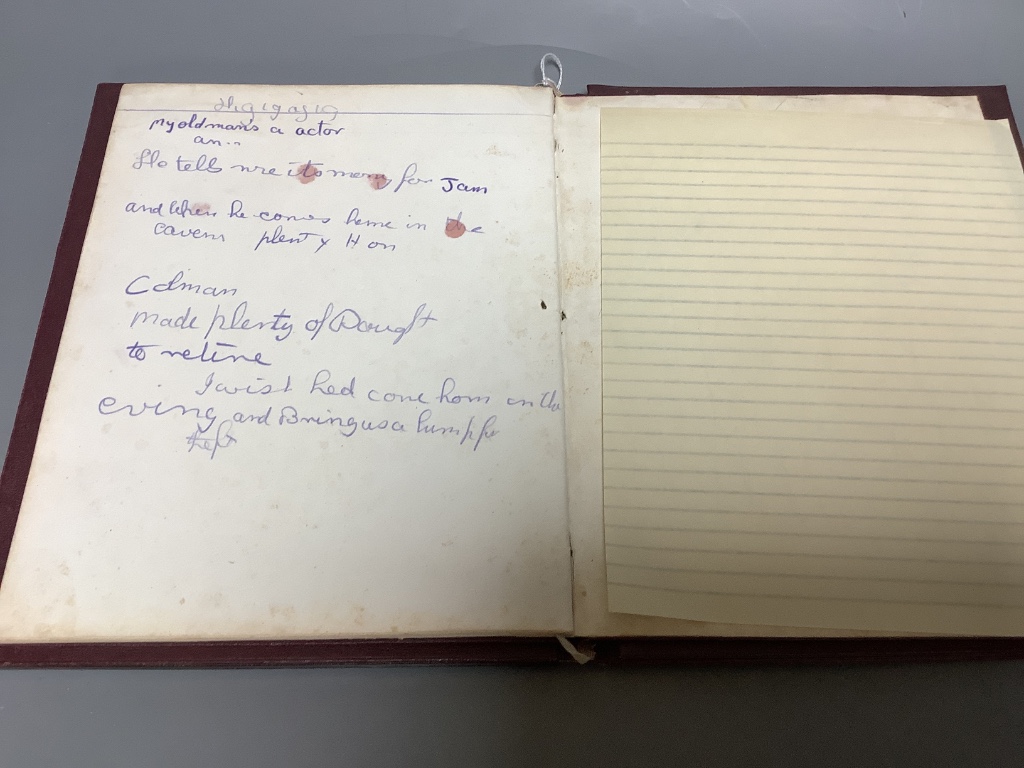 my old mans a actor
an..
He tells me its mony for Jam
and when he comes home in the
plenty H on
Colman
made plenty of Dought
to retire
I wist hed come hom in the
eving and Bring us a lump for